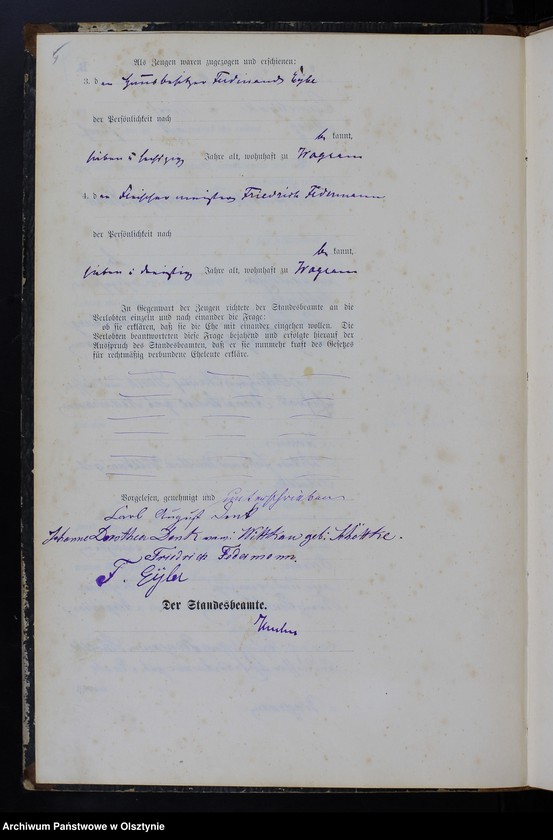 5
Als Zeugen waren zugezogen und erschienen:
3. den Grundbesitzer Ferdinand Eyler
der Persönlichkeit nach
be kannt,
sieben u sechzig Jahre alt, wohnhaft zu
4. den Fleischermeister Friedrich Federmann
der Persönlichkeit nach
be kannt,
sieben u dreißig Jahre alt, wohnhaft zu
In Gegenwart der Zeugen richtete der Standesbeamte an die
Verlobten einzeln und nach einander die Frage:
ob sie erklären, daß sie die Ehe mit einander eingehen wollen. Die
Verlobten beantworteten diese Frage bejahend und erfolgte hierauf der
Ausspruch des Standesbeamten, daß er sie nunmehr kraft des Gesetzes
für rechtmäßig verbundene Eheleute erkläre.
Vorgelesen, genehmigt und unterschrieben
Carl August Denk
Johanne Dorothea Denk verw: Wittkau geb: Schöttke.
Friedrich Federmann.
F. Eyler
Der Standesbeamte.
Archiwum Państwowe w Olsztynie